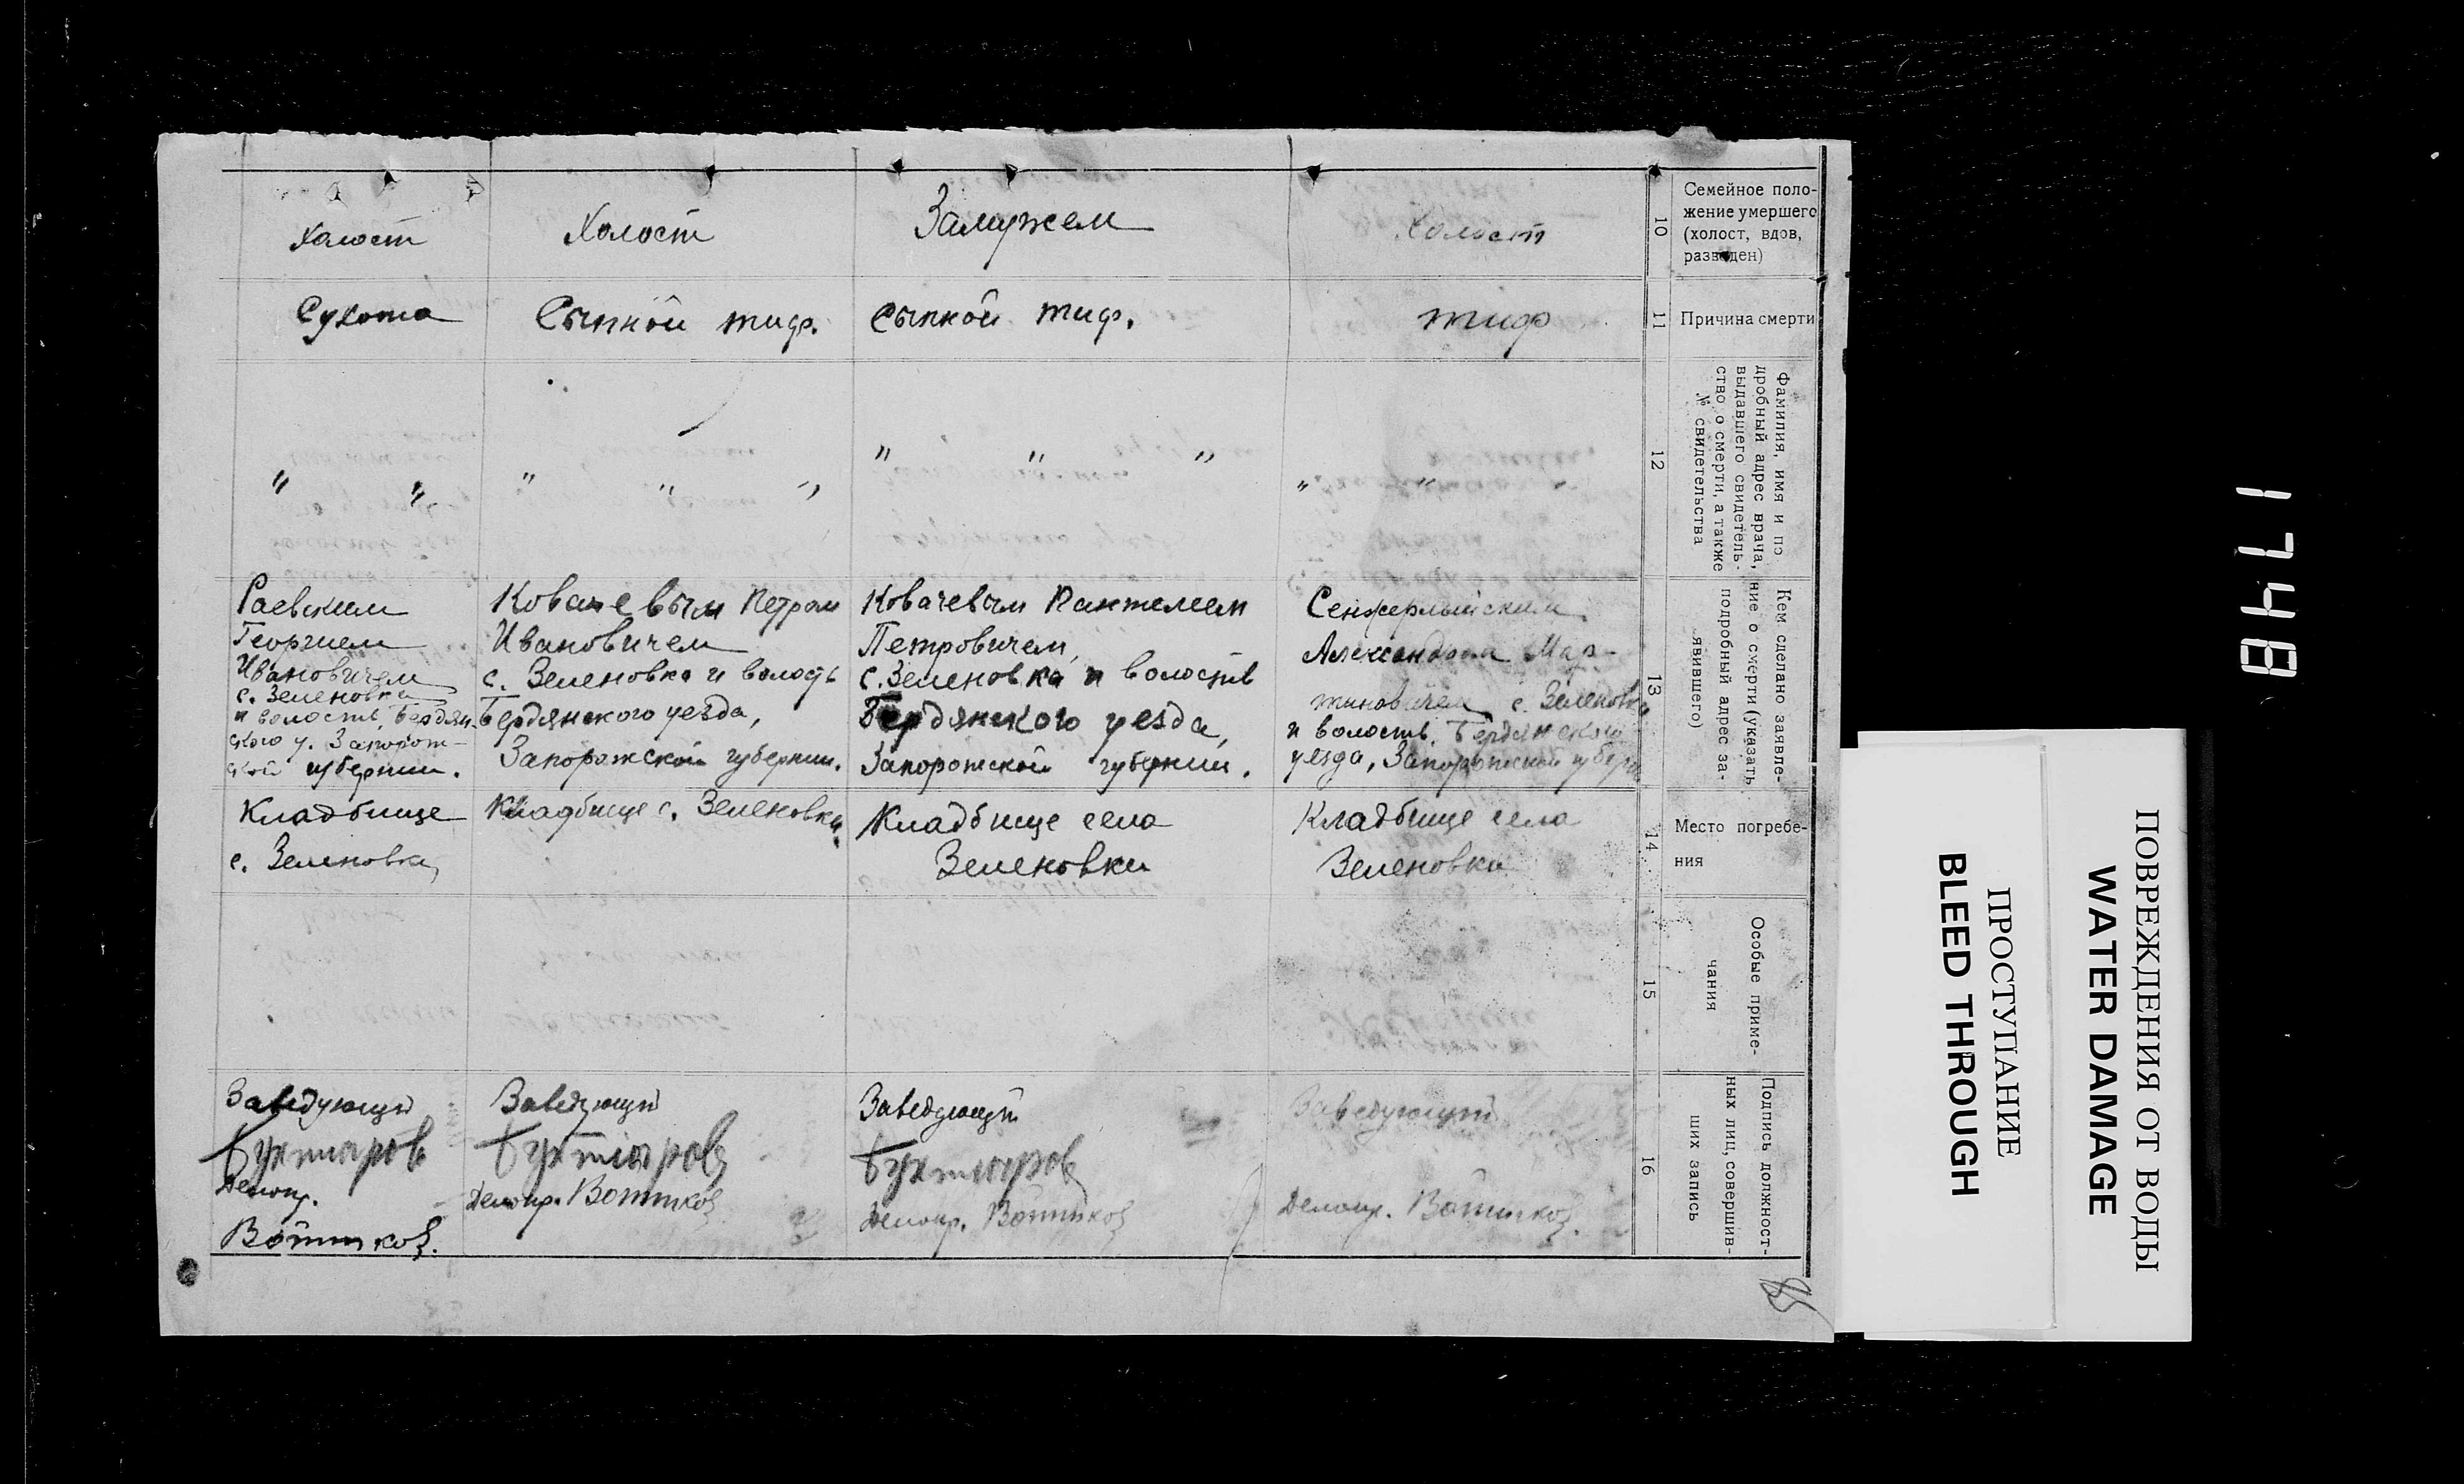 Холост
Холост
Замужем
Холост
10
Семейное поло-
жение умершего
(холост, вдов,
разведен)
Сухота
Сыпной тиф.
Сыпной тиф.
тиф
11
Причина смерти
" "
" " "
" " "
" " "
12
Фамилия, имя и по
дробный адрес врача,
выдавшего свидетель-
ство о смерти, а также
№ свидетельства
Раевским
Георгием
Ивановичем
с. Зеленовка
и волость, Бердян-
ского у. Запорож-
ской губернии.
Ковачевым Петром
Ивановичем
с. Зеленовка и волость
Бердянского уезда,
Запорожской губернии.
Ковачевым Пантелеем
Петровичем,
с. Зеленовка и волость
Бердянского уезда,
Запорожской губернии.
Александром Мар-
тиновичем с. Зеленовка
и волость, Бердянского
уезда, Запорожской губерн
13
Кем сделано заявле-
ние о смерти (указать
подробный адрес за-
явившего)
Кладбище
с. Зеленовки
Кладбище с. Зеленовки.
Кладбище села
Зеленовки
Кладбище села
Зеленовки
14
Место погребе-
ния
15
Особые приме-
чания
Заведующий
Бухтіаров
Делопр.
Войтиков.
Заведующий
Бухтіаров
Делопр. Войтиков
Заведующий
Бухтіаров
Делопр. Войтиков
Заведующий
Делопр. Войтиков.
16
Подпись должност-
ных лиц, совершив-
ших запись
1748
ПОВРЕЖДЕНИЯ ОТ ВОДЫ
WATER DAMAGE
ПРОСТУПАНИЕ
BLEED THROUGH